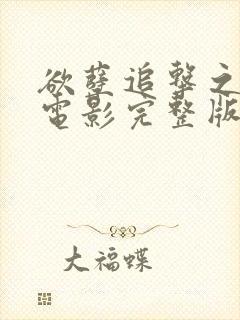 欲孽追擊之
電影完整版
大福蝶